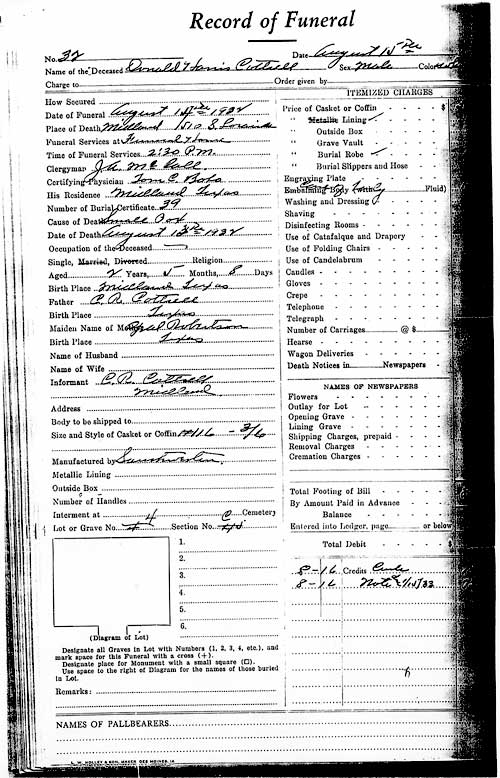 Record of Funeral
No. 32 Date August 15th
Name of the Deceased Donald Harris Cottrell Sex Male Color
Charge to Order given by
How Secured
Date of Funeral August 1932
Place of Death Midland 1510 S.
Funeral Services at Funeral Home
Time of Funeral Services 2:30 P.M.
Clergyman J.A. McCall
Certifying Physician Tom C. Bobo
His Residence Midland Texas
Number of Burial Certificate 39
Cause of Death Small Pox
Date of Death August 1932
Occupation of the Deceased —
Single, Married, Divorced Religion
Aged 2 Years, 5 Months, 8 Days
Birth Place Midland Texas
Father C. R. Cottrell
Birth Place Texas
Maiden Name of Mother Robertson
Birth Place Texas
Name of Husband
Name of Wife
Informant C. R. Cottrell
Midland
Address
Body to be shipped to
Size and Style of Casket or Coffin #116 - 3/6
Manufactured by
Metallic Lining
Outside Box
Number of Handles
Interment at C Cemetery
Lot or Grave No. 4 Section No.
1.
2.
3.
4.
5.
6.
(Diagram of Lot)
Designate all Graves in Lot with Numbers (1, 2, 3, 4, etc.), and
mark space for this Funeral with a cross (+).
Designate place for Monument with a small square (□).
Use space to the right of Diagram for the names of those buried
in Lot.
Remarks:
ITEMIZED CHARGES
Price of Casket or Coffin $
" Metallic Lining
" Outside Box
" Grave Vault
" Burial Robe
" Burial Slippers and Hose
Engraving Plate
Embalming Body (with Fluid)
Washing and Dressing
Shaving
Disinfecting Rooms
Use of Catafalque and Drapery
Use of Folding Chairs
Use of Candelabrum
Candles
Gloves
Crepe
Telephone
Telegraph
Number of Carriages @ $
Hearse
Wagon Deliveries
Death Notices in Newspapers
NAMES OF NEWSPAPERS
Flowers
Outlay for Lot
Opening Grave
Lining Grave
Shipping Charges, prepaid
Removal Charges
Cremation Charges
Total Footing of Bill
By Amount Paid in Advance
Balance
Entered into Ledger, page or below
Total Debit $
8-16 Credits
8-16 Note
NAMES OF PALLBEARERS